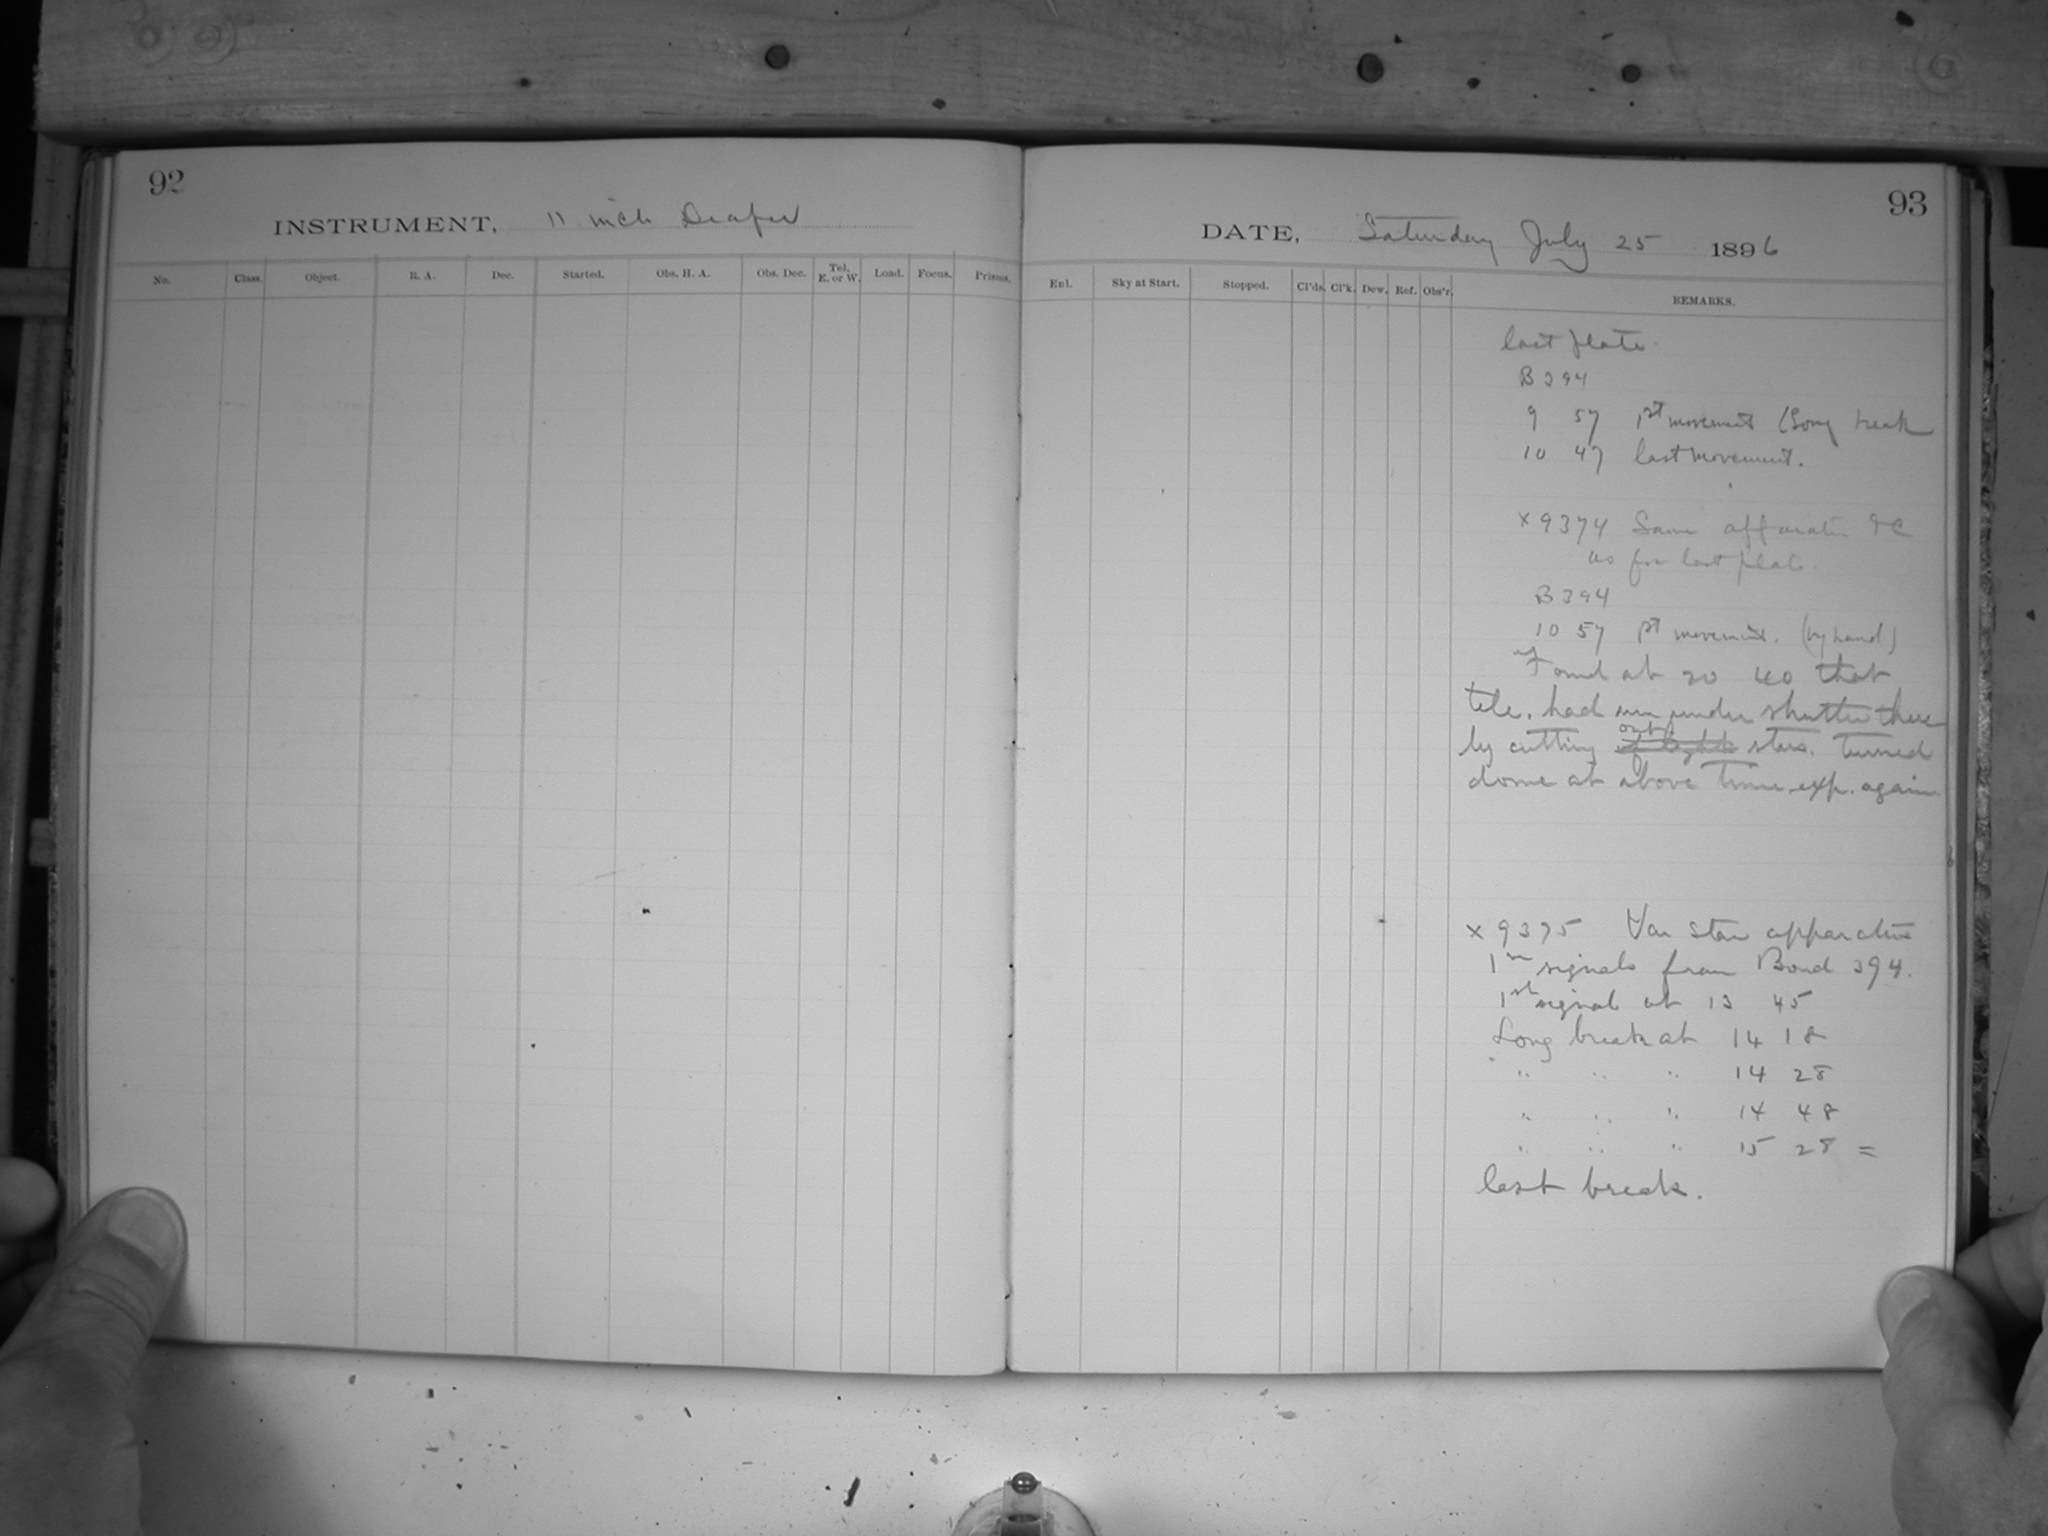 92
INSTRUMENT, 11 inch Draper
No. Class. Object. R. A. Dec. Started. Obs. H. A. Obs. Dec. Tel. E. or W. Load. Focus. Prisms.
93
DATE, Saturday July 25 1896
Enl. Sky at Start. Stopped. Cl'ds. Cl'k. Dew. Ref. Obs'r. REMARKS.
last plate.
B 394
9 57 1st movement (Long break
10 47 last movement.
x 9374 Same apparatus &c
as for last plate.
B 394
10 57 1st movement. (by hand)
Found at 20 40 that
tele. had run under shutter there
by cutting out of light stars. Turned
dome at above time. exp. again.
x 9375 Var star apparatus
signals from Bond 394.
1st signal at 13 45
Long break at 14 18
" " " 14 28
" " " 14 48
" " " 15 28 =
last break.